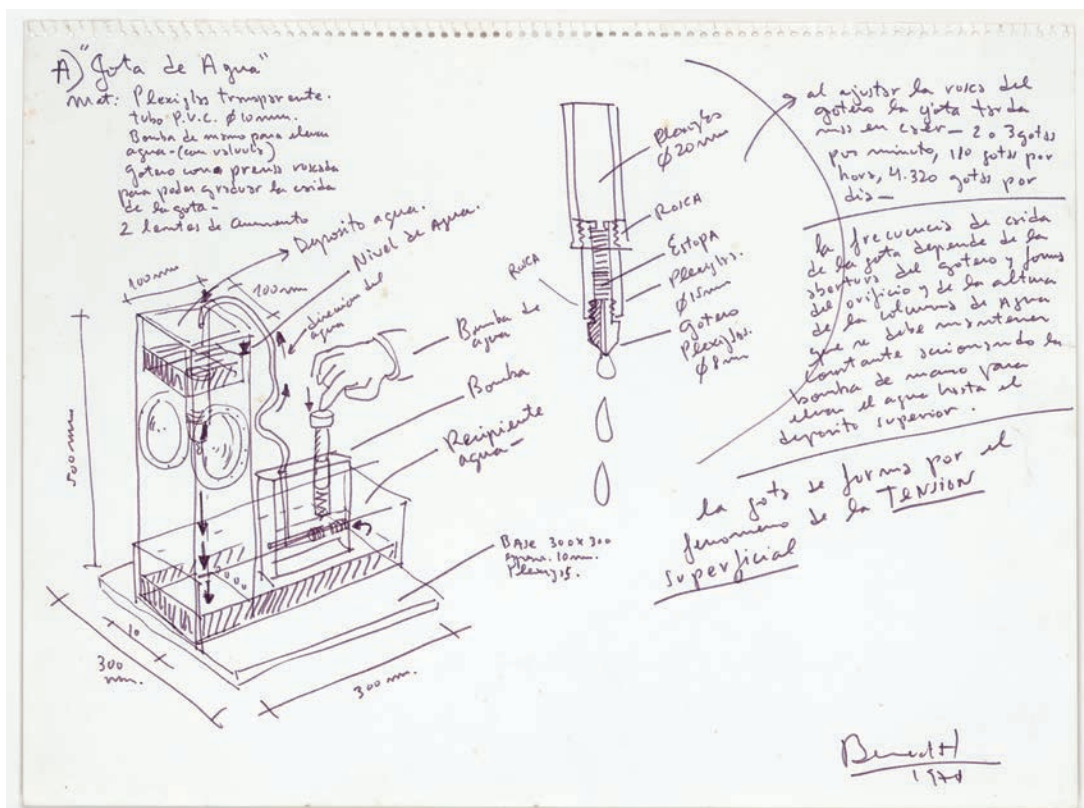 A) "Gota de Agua"
Mat: Plexiglas transparente.
tubo P.V.C. Ø 10mm.
Bomba de mano para elevar
agua-(con valvula)
gotero con prensa roscada
para poder graduar la caida
de la gota-
2 lentes de aumento
Deposito agua.
Nivel de Agua.
100mm
100mm
direccion del
agua
Bomba de
agua
Bomba
Recipiente
agua-
500mm
Base 300x300
10mm.
Plexigs.
10
300
mm.
300mm.
Plexiglas
Ø20mm
ROSCA
ESTOPA
ROSCA
Plexiglas.
Ø15mm
gotero
Plexiglas.
Ø8mm
al ajustar la rosca del
gotero la gota tarda
mas en caer- 2 o 3 gotas
por minuto, 180 gotas por
hora, 4.320 gotas por
dia-
la frecuencia de caida
de la gota depende de la
abertura del gotero y forma
del orificio y de la altura
de la columna de Agua
que se debe mantener
constante accionando la
bomba de mano para
elevar el agua hasta el
deposito superior.
la gota se forma por el
fenomeno de la TENSION
superficial
Benedit